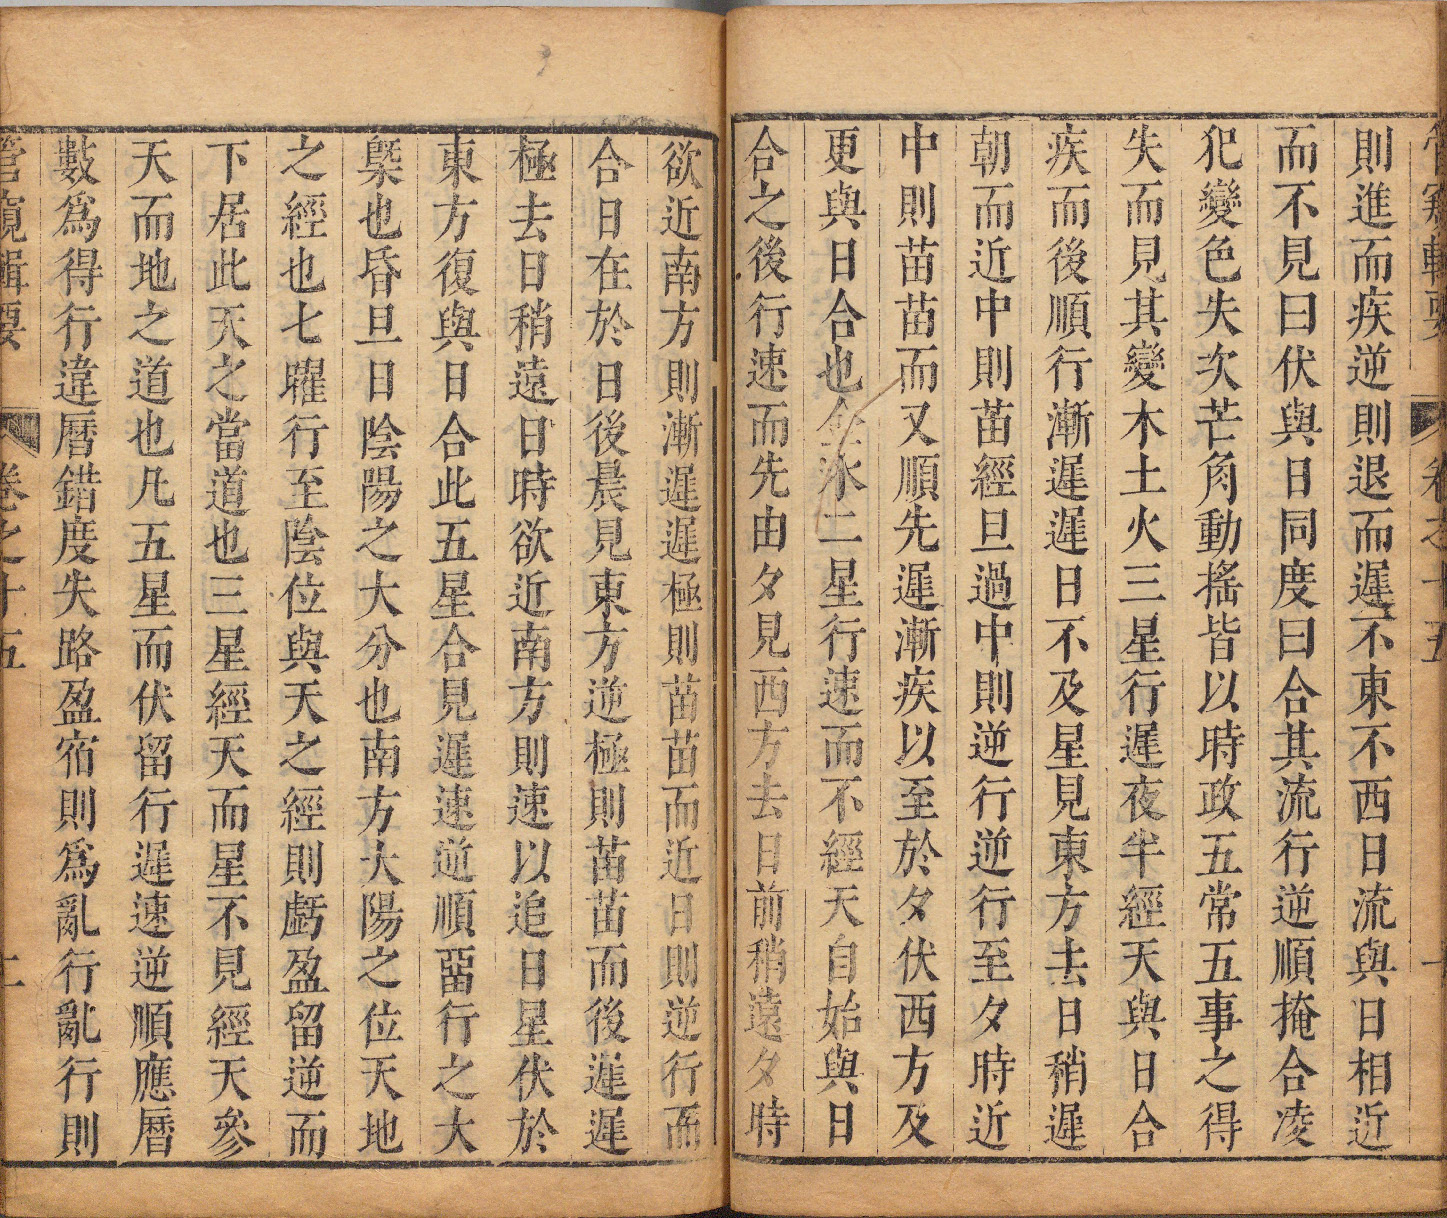 管窺輯要 卷之十五
則進而疾逆則退而遲不東不西日流與日相近
而不見曰伏與日同度曰合其流行逆順掩合凌
犯變色失次芒角動搖皆以時政五常五事之得
失而見其變木土火三星行遲夜半經天與日合
疾而後順行漸遲遲日不及星見東方去日稍遲
朝而近中則苗經旦過中則逆行逆行至夕時近
中則苗苗而又順先遲漸疾以至於夕伏西方及
更與日合也金水二星行速而不經天自始與日
合之後行速而先由夕見西方去日前稍遠夕時
欲近南方則漸遲遲極則苗苗而近日則逆行而
合日在於日後晨見東方逆極則苗苗而後遲遲
極去日稍遠日時欲近南方則速以追日星伏於
東方復與日合此五星合見遲速逆順留行之大
槩也昏旦日陰陽之大分也南方大陽之位天地
之經也七曜行至陰位與天之經則虧盈留逆而
下居此天之當道也三星經天而星不見經天參
天而地之道也凡五星而伏留行遲速逆順應曆
數爲得行違曆錯度失路盈宿則爲亂行亂行則
管窺輯要 卷之十五